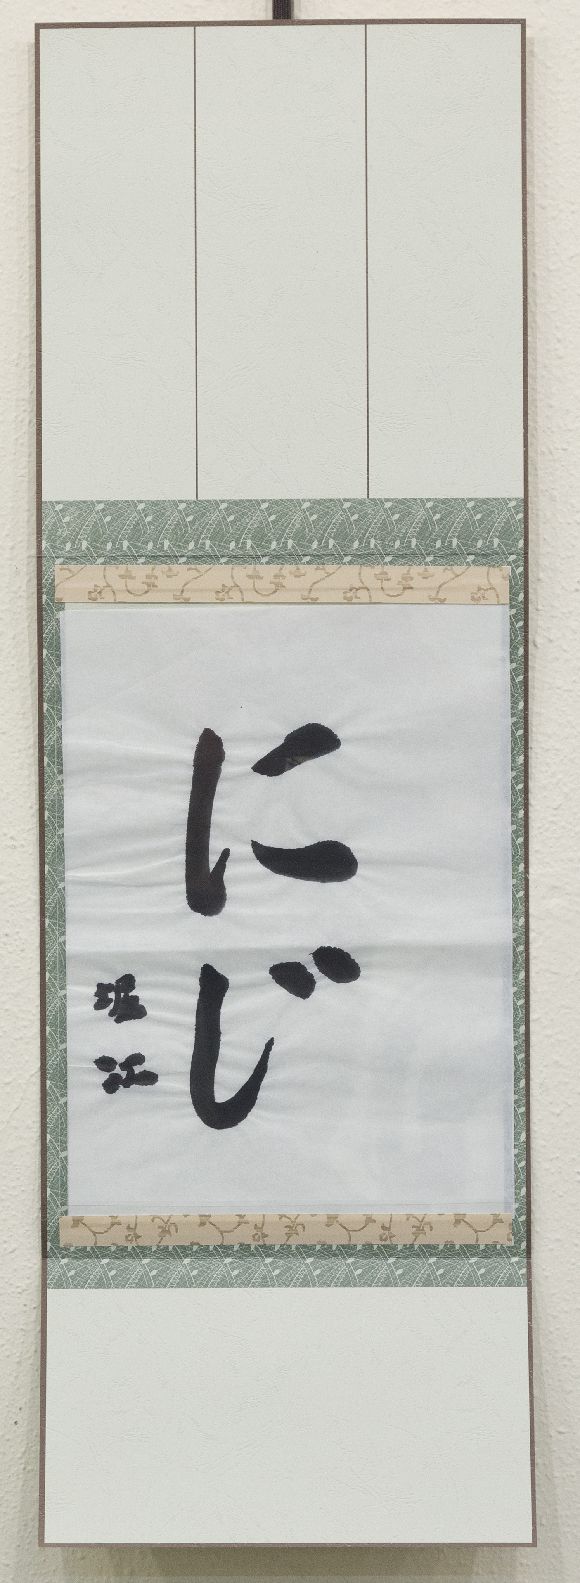 にじ
堀江